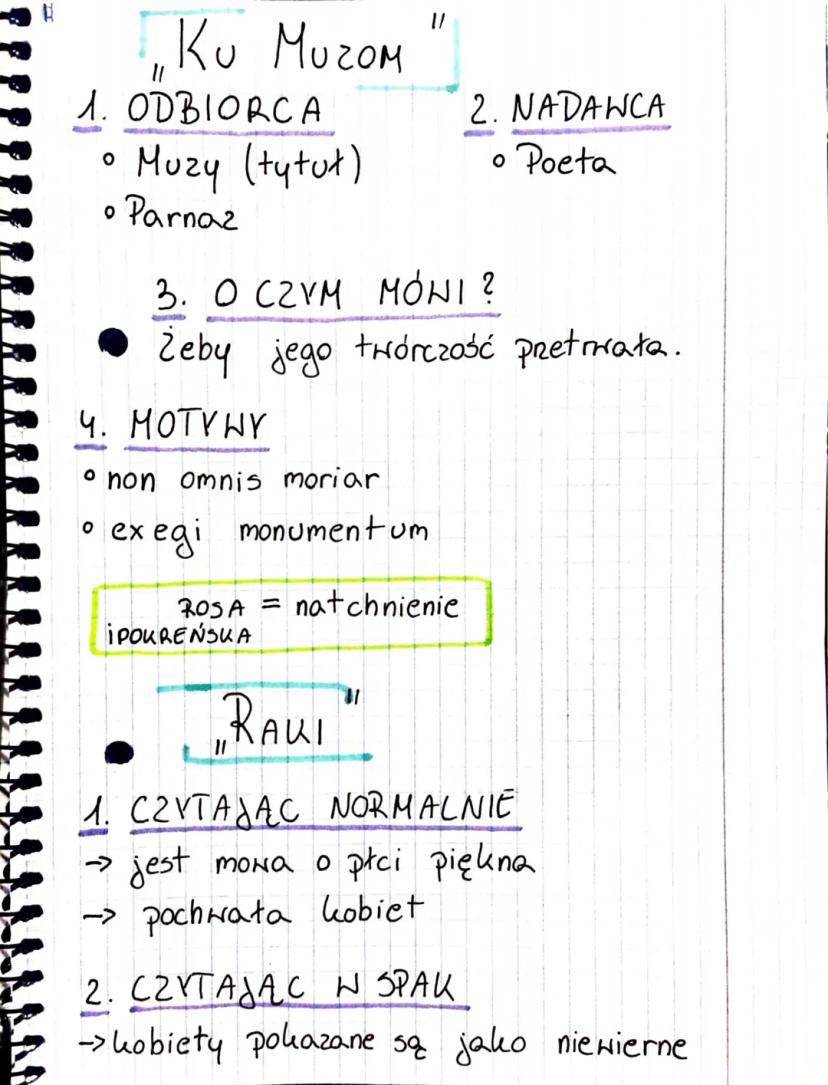 „Ku Muzom"
1. ODBIORCA
° Muzy (tytuł)
° Parnaz
2. NADAWCA
° Poeta
3. O CZYM MÓWI?
Żeby jego twórczość przetrwała.
4. MOTYWY
° non omnis moriar
° exegi monumentum
ROSA = natchnienie
iPOKREŃSKA
„RAKI"
1. CZYTAJĄC NORMALNIE
→ jest mowa o płci piękna
→ pochwała kobiet
2. CZYTAJĄC W SPAK
→ kobiety pokazane są jako niewierne